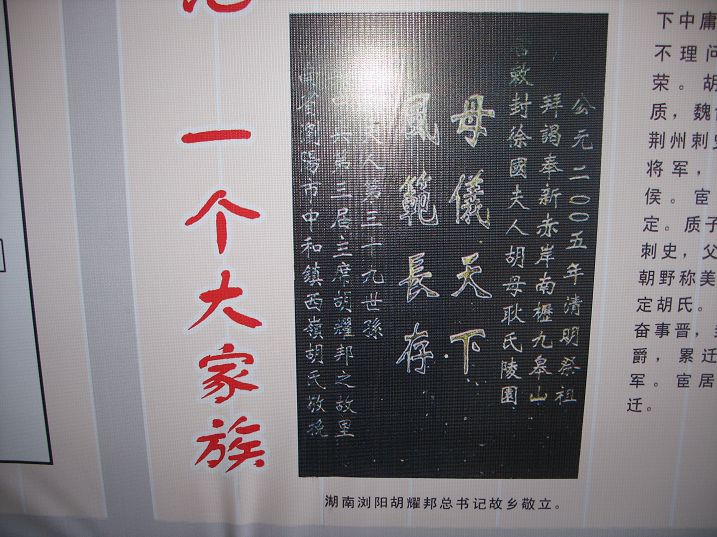 一个大家族
公元二〇〇五年清明祭祖
拜謁奉新赤岸南櫪九皋山
敕封徐國夫人胡母耿氏陵園
母儀天下
風範長存
夫人第三十九世孫
第三届主席胡耀邦之故里
南省瀏陽市中和鎮西嶺胡氏敬挽
湖南浏阳胡耀邦总书记故乡敬立。
下中庸
不理问
荣。胡
质，魏
荆州刺史
将军，
侯。宦
定。质子
刺史，父
朝野称美
定胡氏。
奋事晋，
爵，累迁
军。宦居
迁。